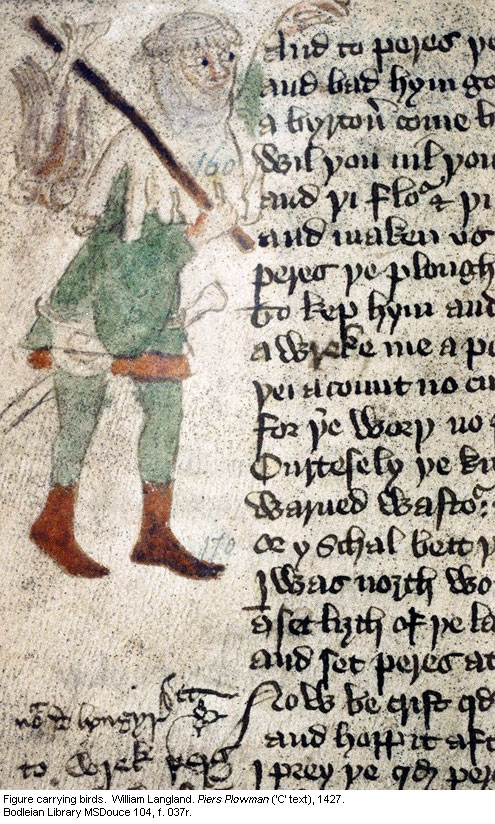 And to peres ye
and bad hym go
a come
160
Wil you nil you
and yi flor & yi
and maken us
peres ye plough
to kep hym and
a wreke me a
yei acount no
for ye wory no
Curtesely ye
warned wastor
170
or y schal bett
y was noȝth wo
set liȝth of ye la
and set peres at
now be crist qd
hongyr
and hopp it aft
to wrek
I prey ye qd per
Figure carrying birds. William Langland. Piers Plowman ('C' text), 1427.
Bodleian Library MSDouce 104, f. 037r.